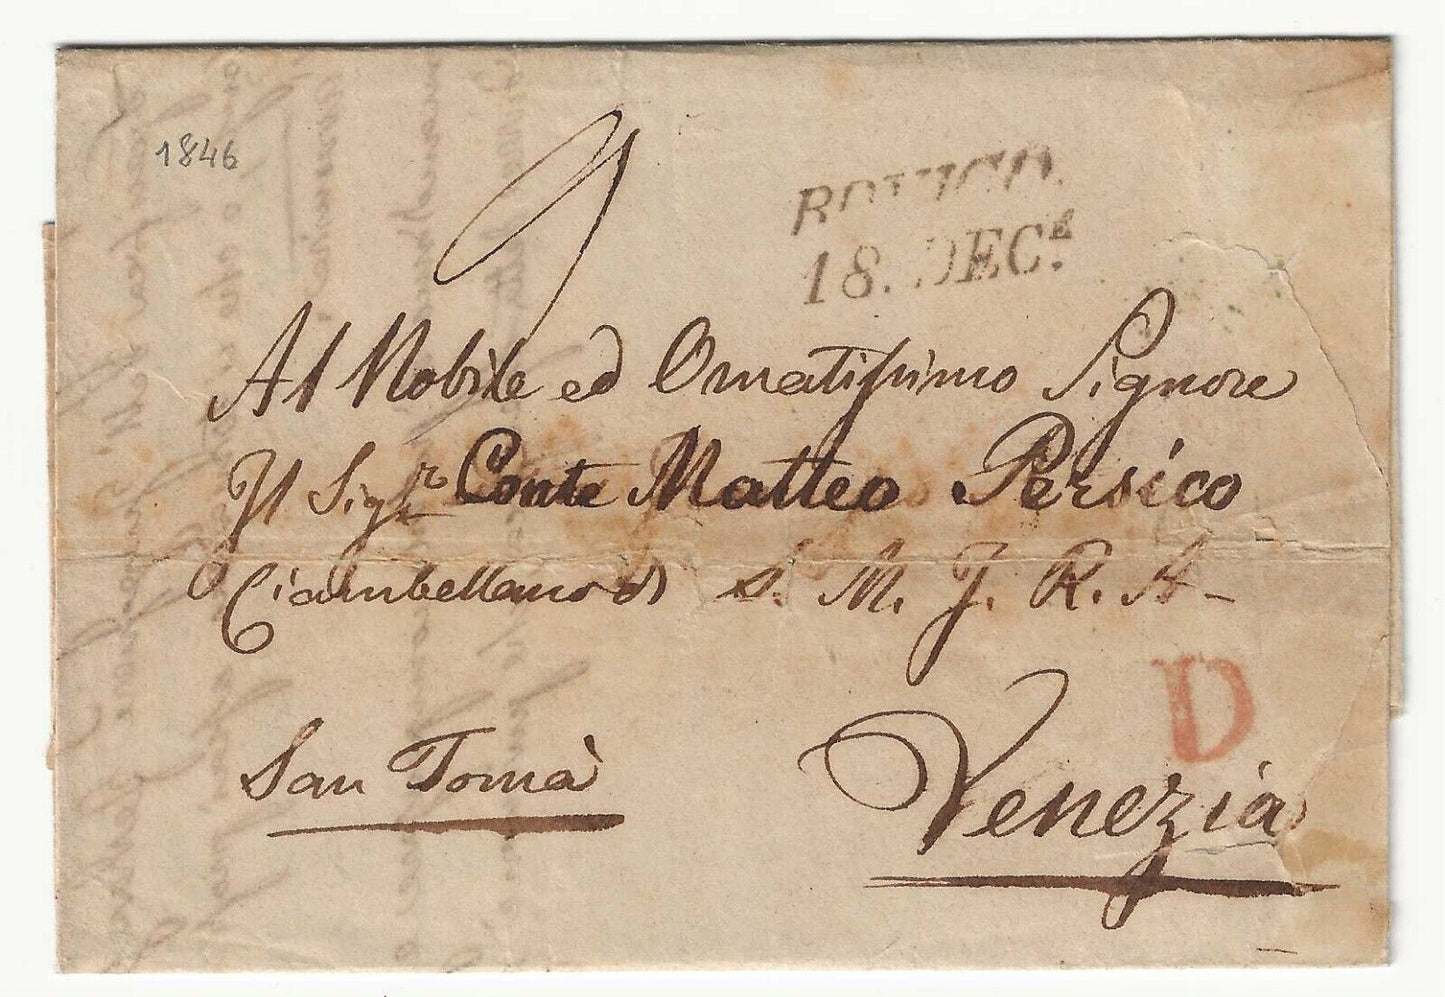 1846
ROVIGO.
18. DEC.ᴱ
Al Nobile ed Ornatissimo Signore
Il Sig.r Conte Matteo Persico
Ciambellano di S. M. I. R. A.
D
San Tomà
Venezia